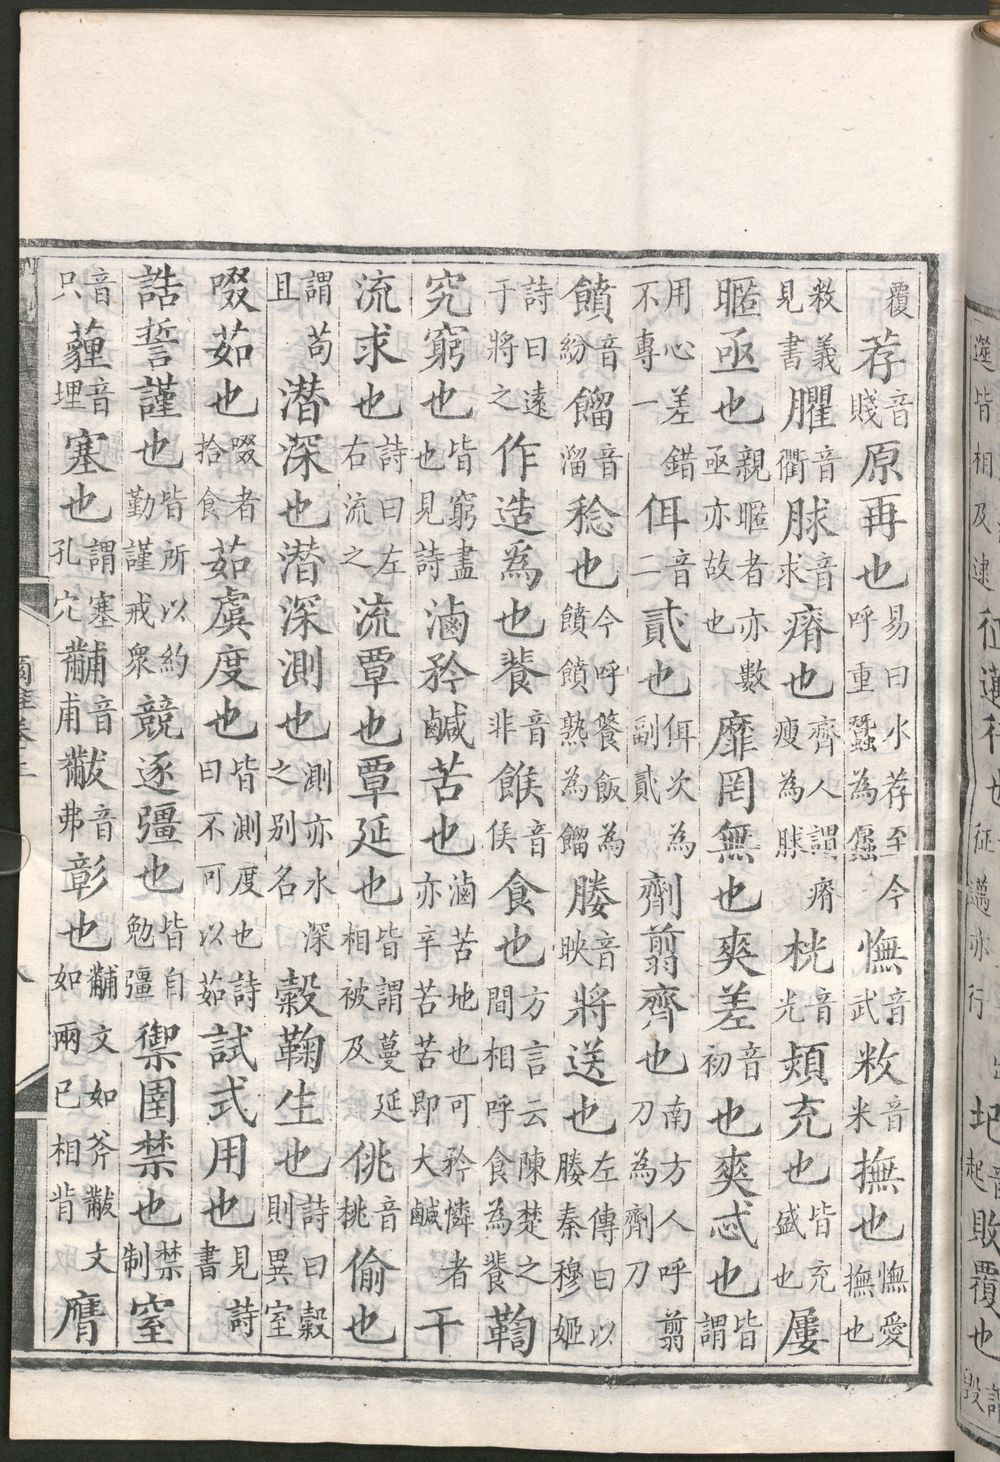 覆荐音賤原再也易曰水荐至今呼重蠶為䘉憮音武敉音米撫也憮愛撫也
敉義見書臞音衢脙音求瘠也齊人謂瘠瘦為脙桄音光熲充也皆充盛也屢
暱亟也親暱者亦數亟亦故也靡罔無也爽差音初也爽忒也皆謂
用心差錯不專一佴音二貳也佴次為副貳劑翦齊也南方人呼翦刀為劑刀
饙音紛餾音溜稔也今呼䬸飯為饙饙熟為餾媵音映將送也左傳曰以媵秦穆姬
詩曰遠于將之作造為也餥音非餱音侯食也方言云陳楚之間相呼食為餥鞫
究窮也皆窮盡也見詩滷矜鹹苦也滷苦地也可矜憐者亦辛苦苦即大鹹干
流求也詩曰左右流之流覃也覃延也皆謂蔓延相被及佻音桃偷也
謂苟且潛深也潛深測也測亦水深之別名榖鞠生也詩曰榖則異室
啜茹也啜者拾食茹虞度也皆測度也詩曰不可以茹試式用也見詩書
誥誓謹也皆所以約勤謹戒眾競逐彊也皆自勉彊禦圉禁也禁制窒
音只薶音埋塞也謂塞孔穴黼音甫黻音弗彰也黼文如斧黻文如兩已相背膺
爾雅卷上
八
遾皆相及逮征邁行也征邁亦行圮音起敗覆也謂毀